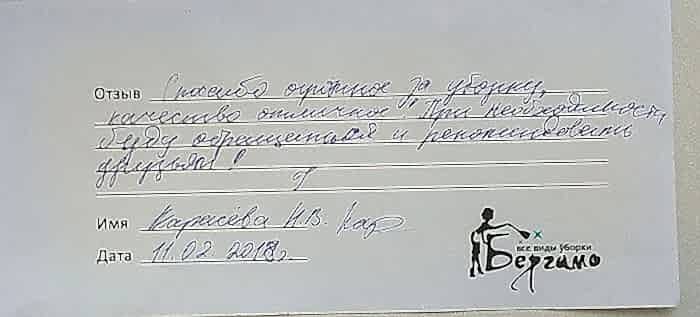 Отзыв Спасибо огромное за уборку,
качество отличное! При необходимости
буду обращаться и рекомендовать
друзьям!
Имя Карасёва Н.В.
Дата 11.02.2018г.
все виды уборки
Бергамо